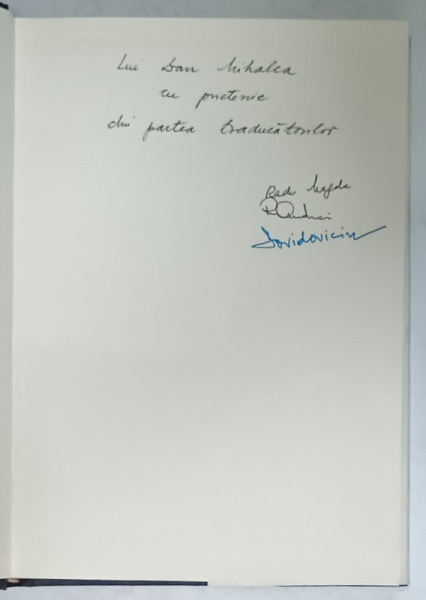 Lui Dan Mihalea
cu prietenie
din partea traducătorilor
Radu Magda
R Andrei
Davidoviciu